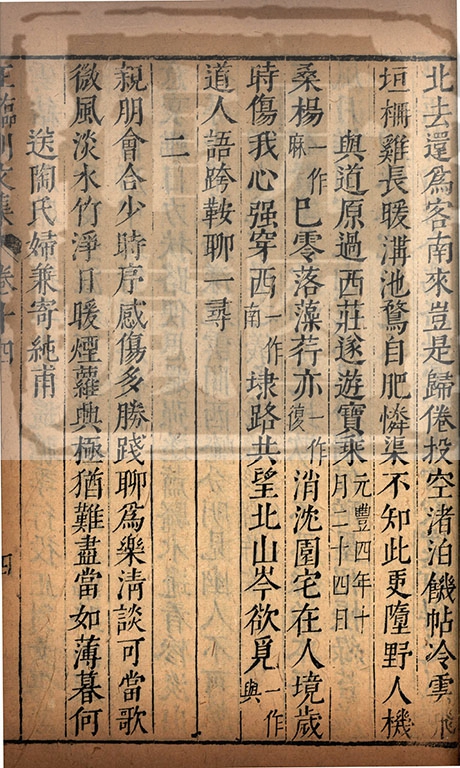 北去還爲客南來豈是歸倦投空渚泊饑帖冷雲飛
垣栅雞長暖溝池鶩自肥憐渠不知此更墮野人機
與道原過西莊遂遊寶乘元豐四年十月二十四日
桑楊一作麻巳零落藻荇亦一作復消沈園宅在人境歲
時傷我心强穿西一作南埭路共望北山岑欲覓一作與
道人語跨鞍聊一尋
二
親朋會合少時序感傷多勝踐聊爲樂清談可當歌
微風淡水竹淨日暖煙蘿興極猶難盡當如薄暮何
送陶氏婦兼寄純甫
王臨川文集 卷十四 四